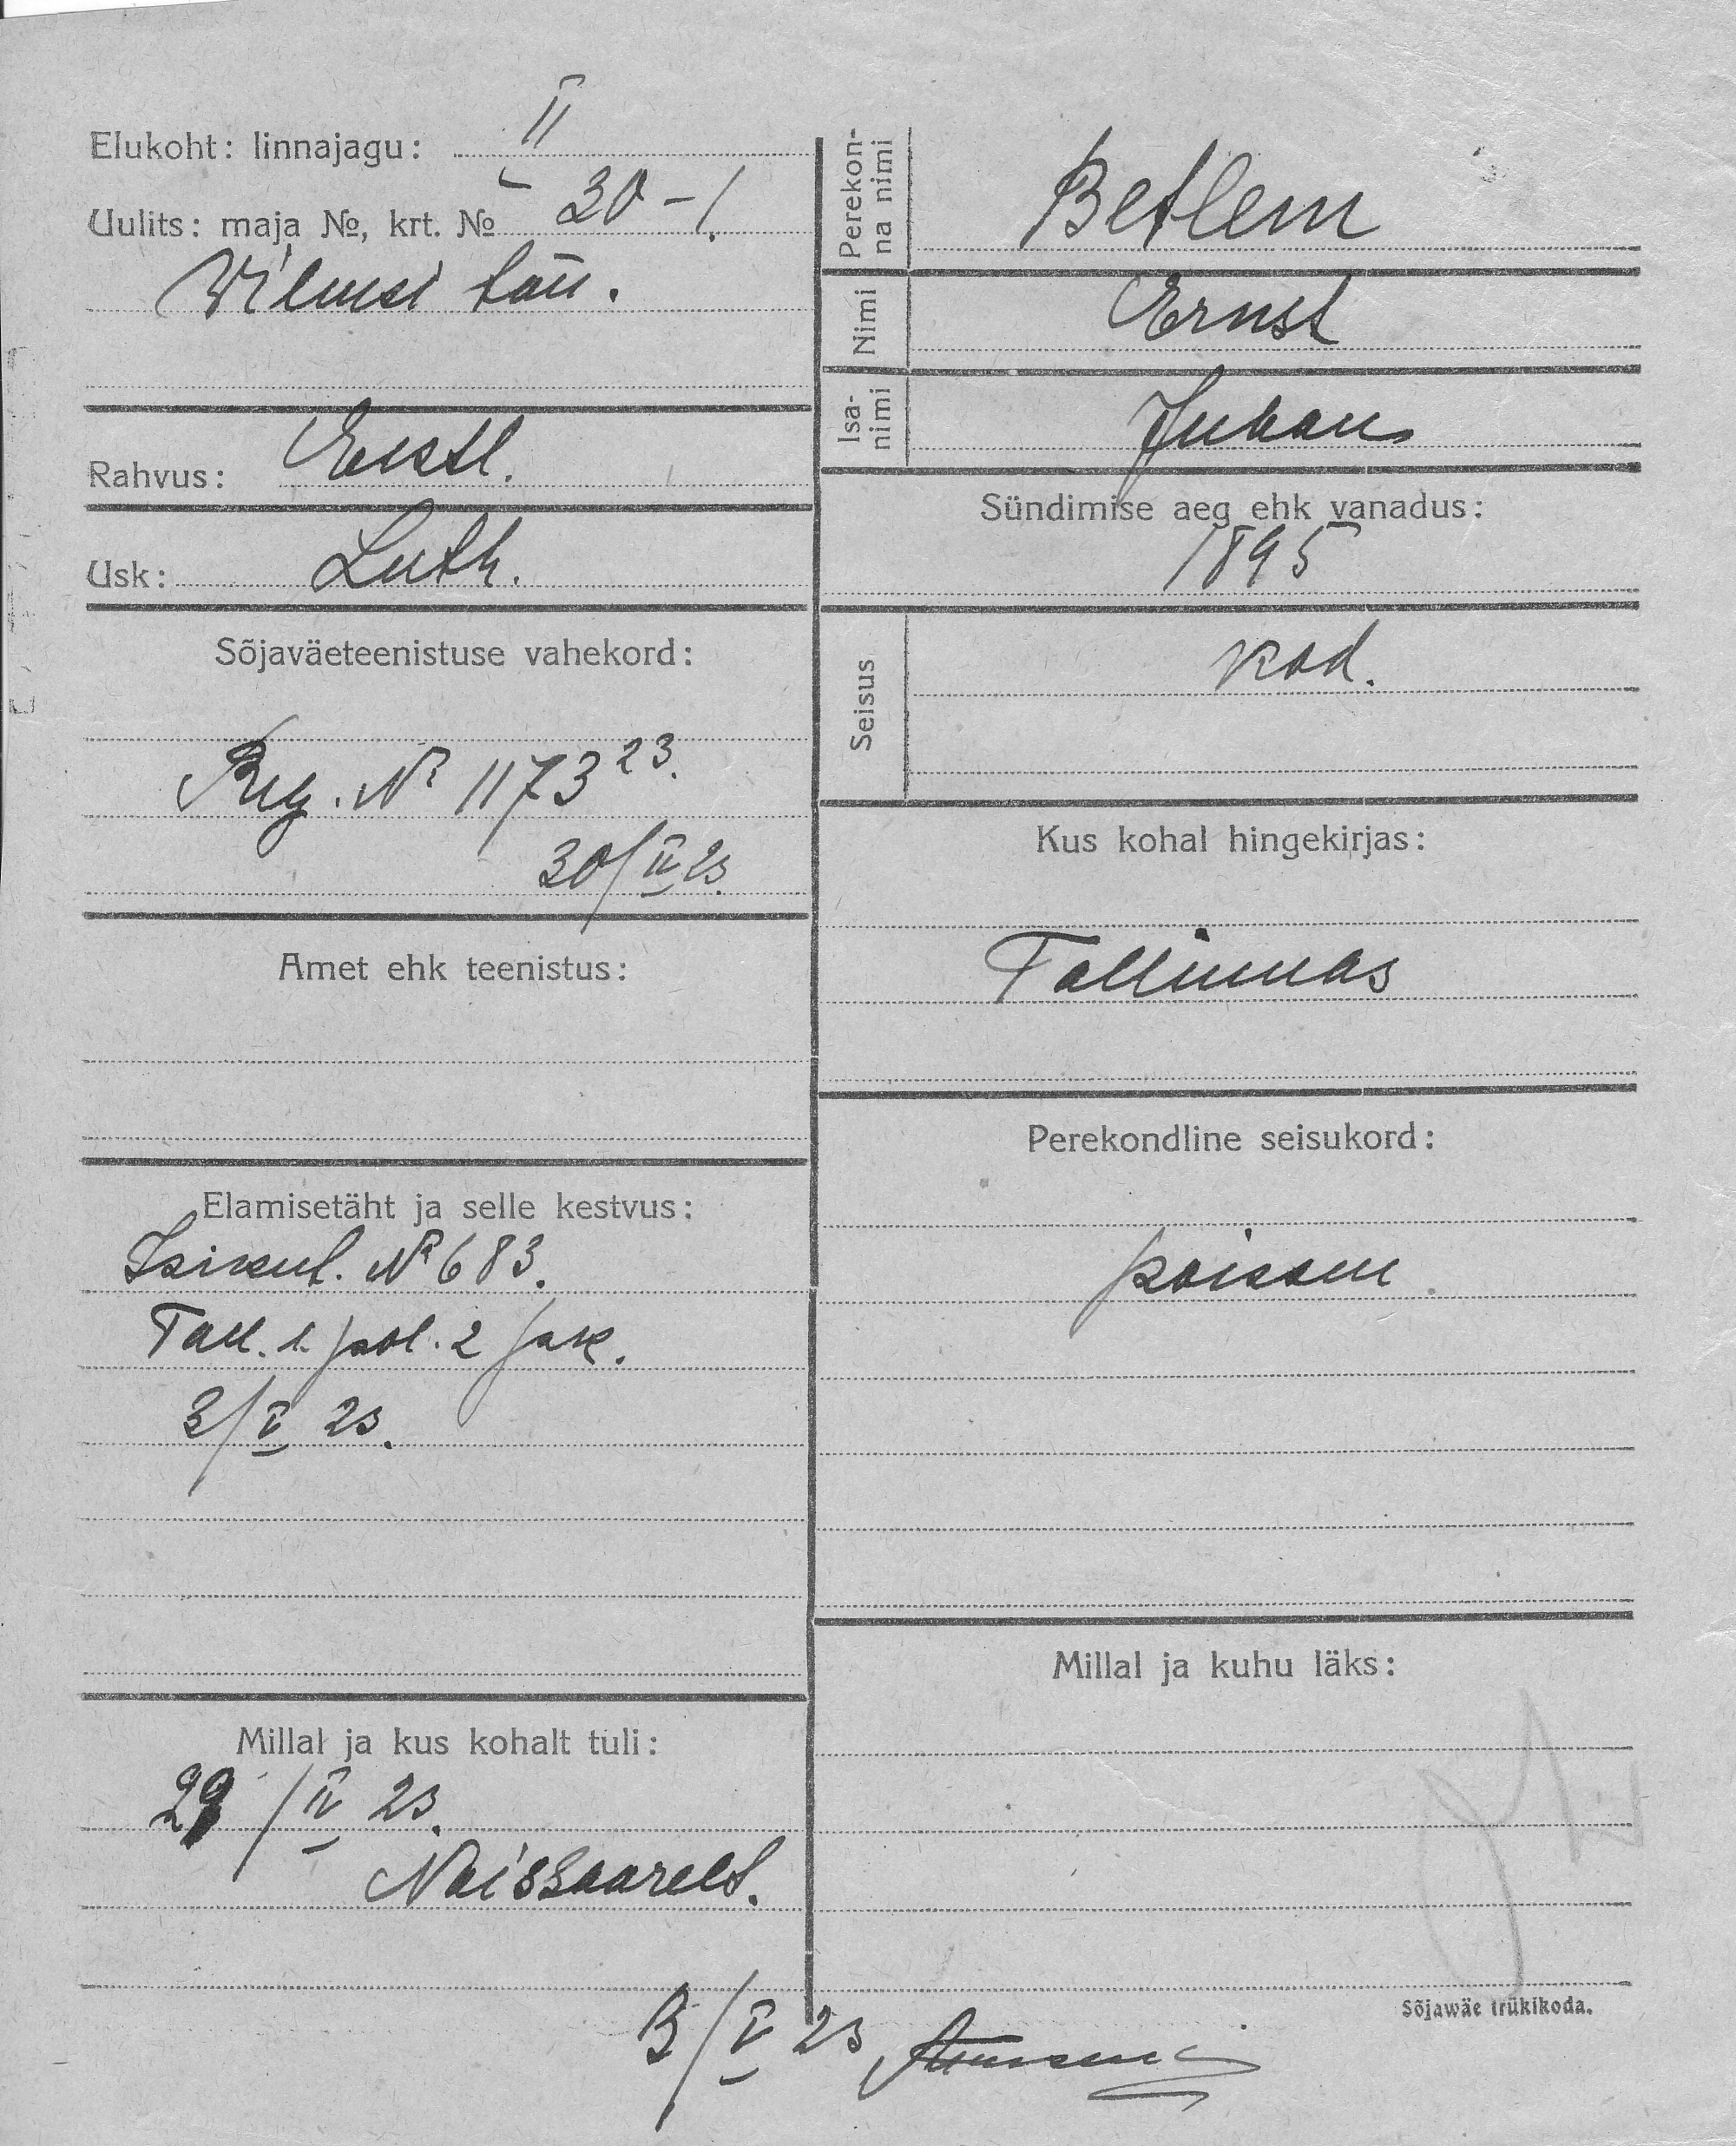 Elukoht: linnajagu: II
Uulits: maja №, krt. № 30-1.
Vilmsi tän.
Rahvus: Eestl.
Usk: Luth.
Sõjaväeteenistuse vahekord:
Reg. № 1173 23.
30/IV 23.
Amet ehk teenistus:
Elamisetäht ja selle kestvus:
Isikut. № 683.
Tall. 1. pol. 2 jask.
3/V 23.
Millal ja kus kohalt tuli:
29/IV 23.
Naissaarelt.
Perekon-
na nimi
Betlem
Nimi Ernst
Isa-
nimi
Juhan
Sündimise aeg ehk vanadus:
1895
Seisus
kod.
Kus kohal hingekirjas:
Tallinnas
Perekondline seisukord:
poissm.
Millal ja kuhu läks:
Sõjawäe trükikoda.
3/V 23